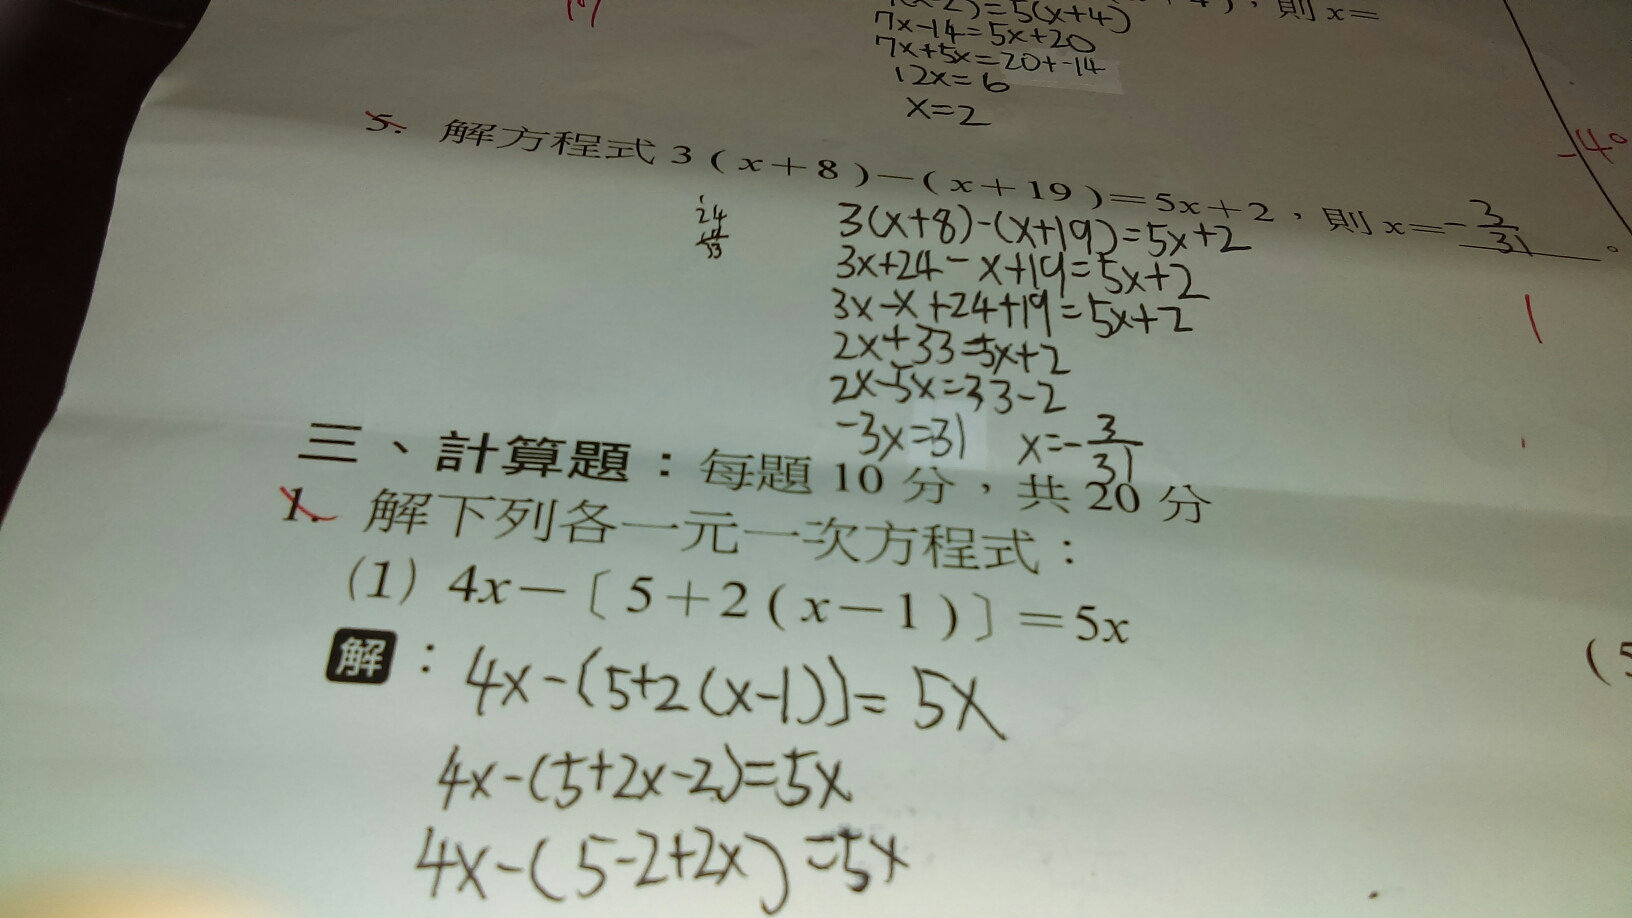 )=5(x+4) ，則 x=
7x-14=5x+20
7x+5x=20+-14
12x=6
x=2
5. 解方程式 3(x+8)-(x+19)=5x+2，則 x=-3/31。
-4°
24
33
3(x+8)-(x+19)=5x+2
3x+24-x+19=5x+2
3x-x+24+19=5x+2
2x+33=5x+2
2x-5x=33-2
-3x=31 x=-3/31
三、計算題：每題 10 分，共 20 分
1. 解下列各一元一次方程式：
(1) 4x-〔5+2(x-1)〕=5x
解：4x-(5+2(x-1))=5x
4x-(5+2x-2)=5x
4x-(5-2+2x)=5x